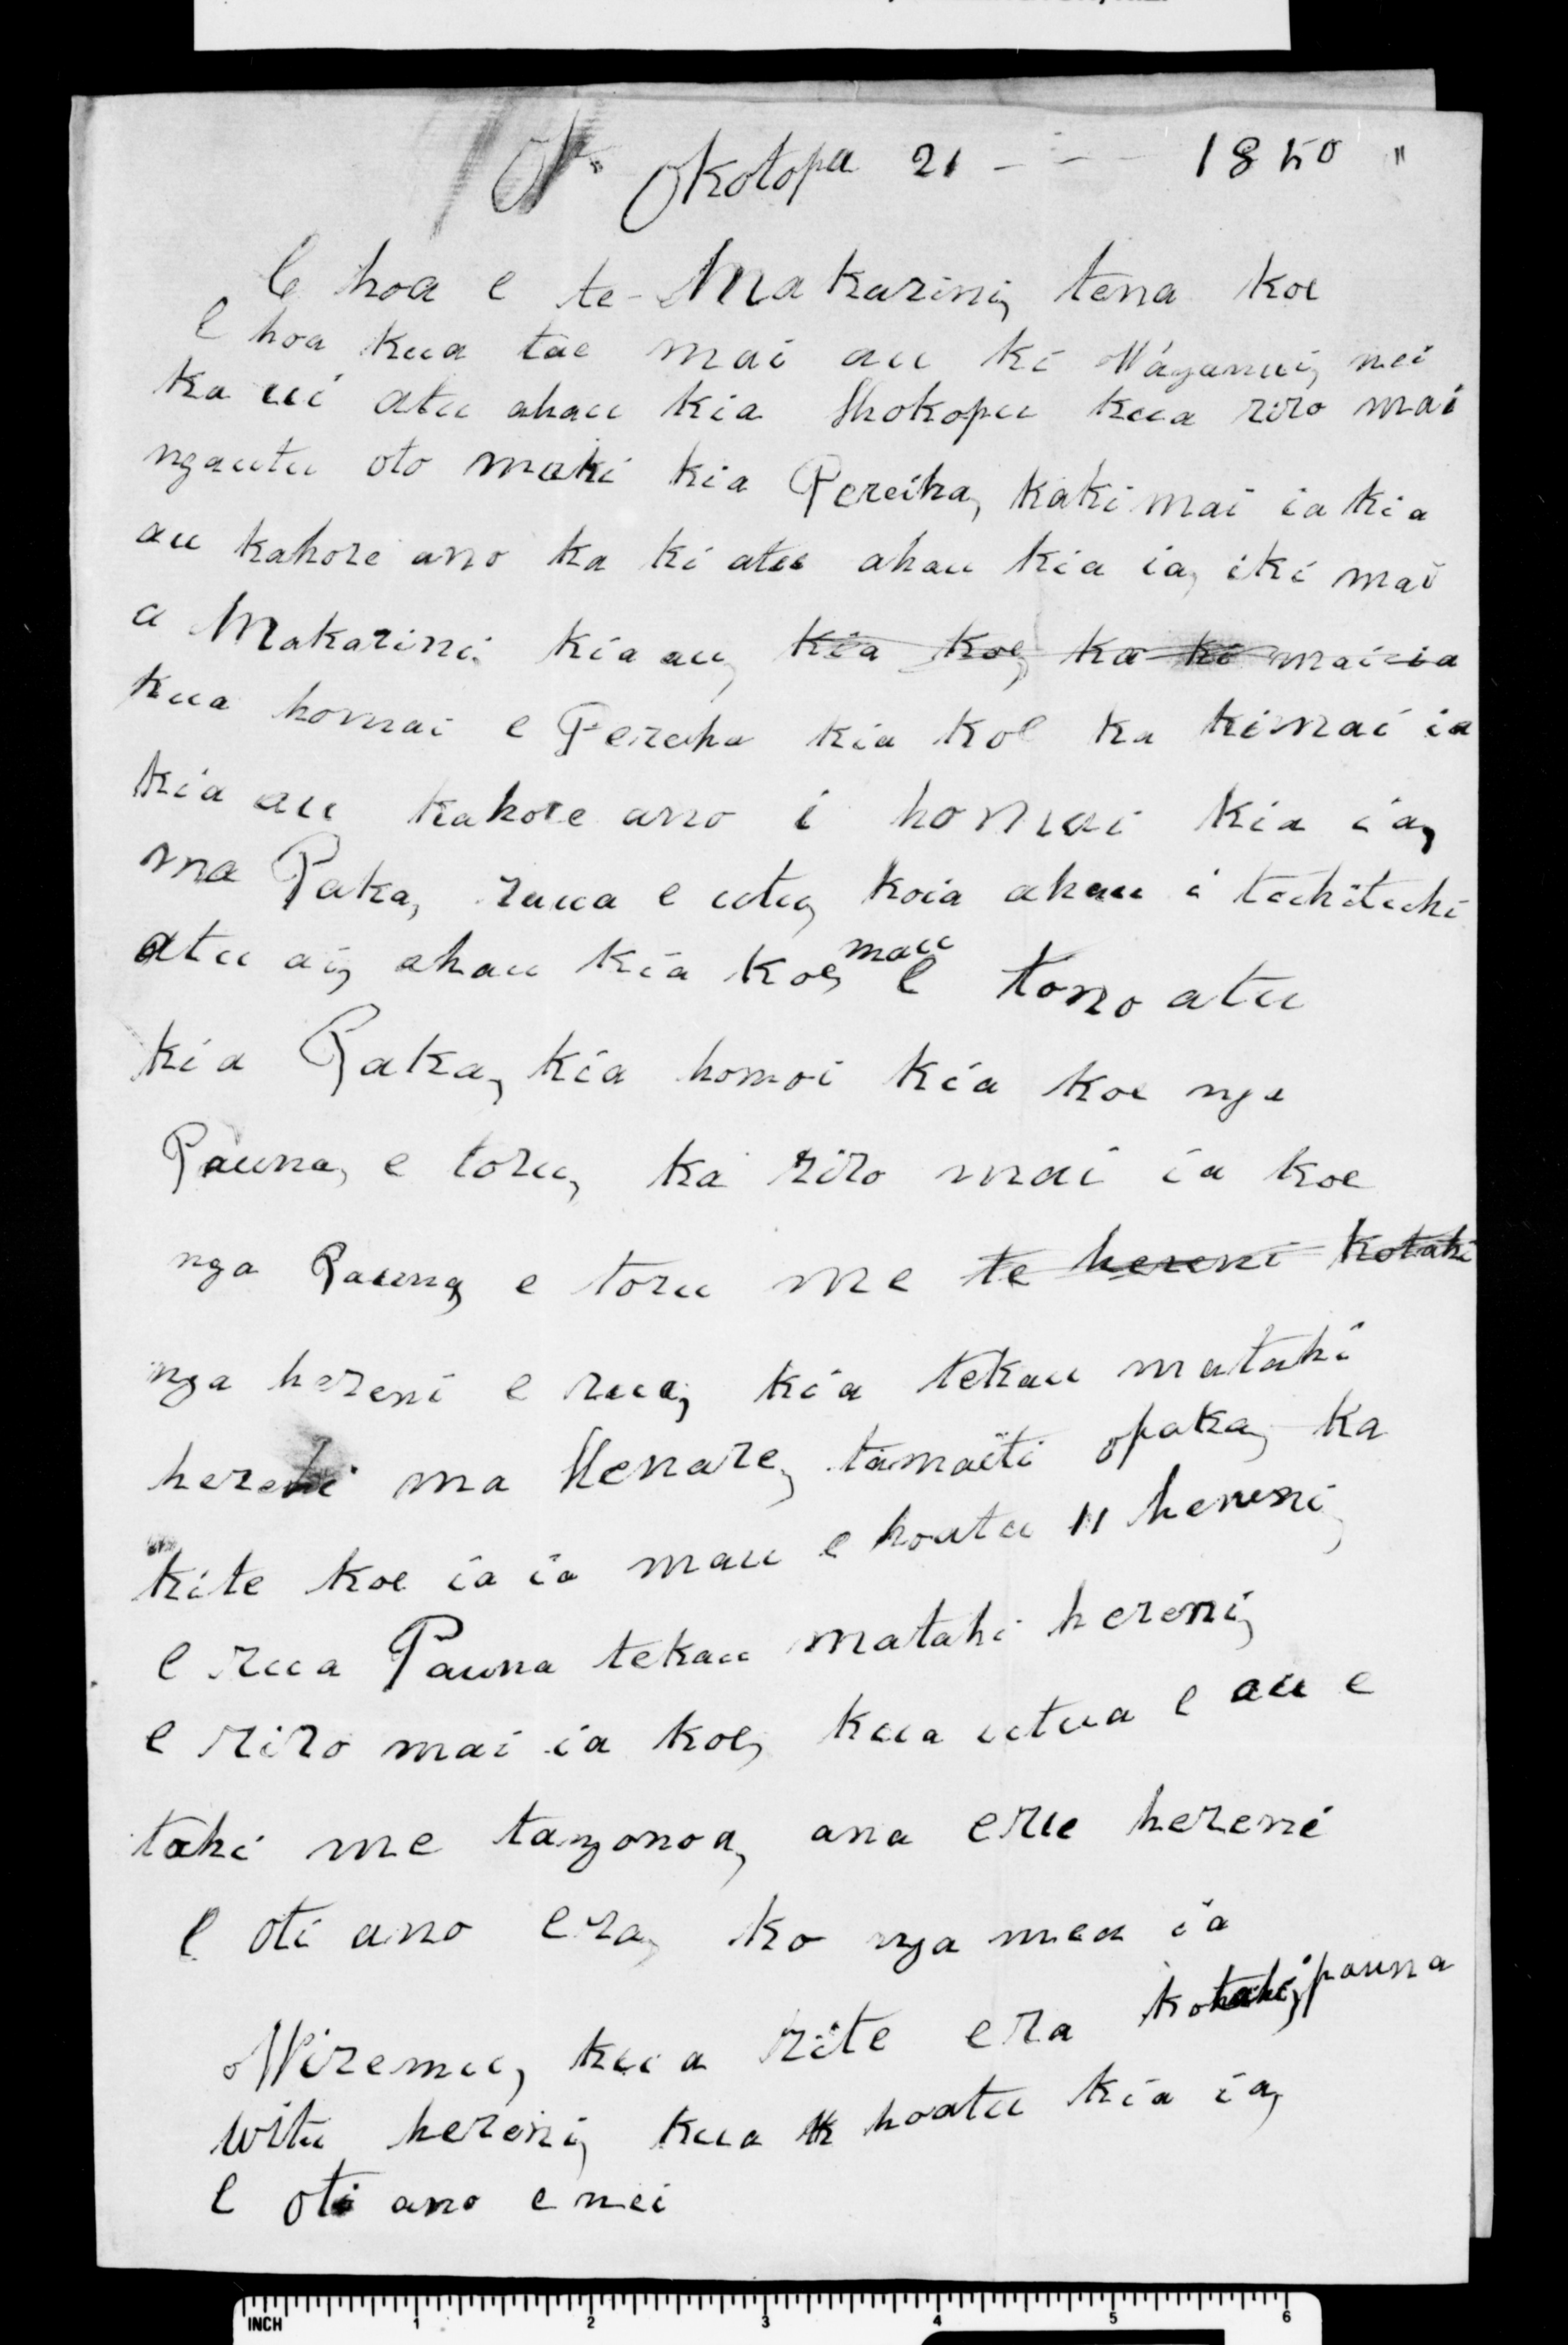 Okotopa 21 - - - 1850 "
E hoa e te Makarini, tena koe
E hoa kua tae mai au ki Wáganui, nei
ka ui atu ahau kia Hokopu kua riro mai
ngautu oto maki kia Pereiha, kaki mai ia kia
au kahore ano ka ki atu ahau kia ia, iki mai
a Makarini kia au, kia koe, ka ki mai ia
kua homai e Pereiha kia koe ka kimai ia
kia au kahore ano i homai kia ia,
ma Paka, raua e utu, koia ahau i tuhituhi
atu ai, ahau kia koe, mau e tono atu
kia Paka, kia homoi kia koe nga
Pauna, e toru, ka riro mai ia koe
nga Pauna, e toru me te hereni kotahi
nga hereni e rua, kia tekau matahi
hereni ma Henare, tamaiti opaka, ka
kite koe ia ia mau e hoatu 11 hereni,
e rua Pauna tekau matahi hereni,
e riro mai ia koe, kua utua e au e
tahi me tangonoa, ana erue hereni
E oti ano era, ko nga mea ia
Wiremu, kua rite era kotahi, pauna
witu hereni, kua hoatu kia ia,
E oti ano enei
INCH 1 2 3 4 5 6